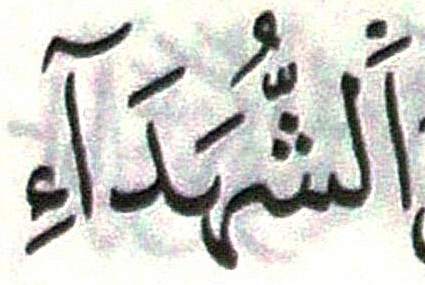 الشُّهَدَآءِ